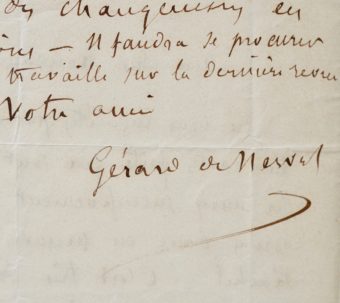 des changemens en
— Il faudra se procurer
travaille sur la dernière revue
Votre ami
Gérard de Nerval